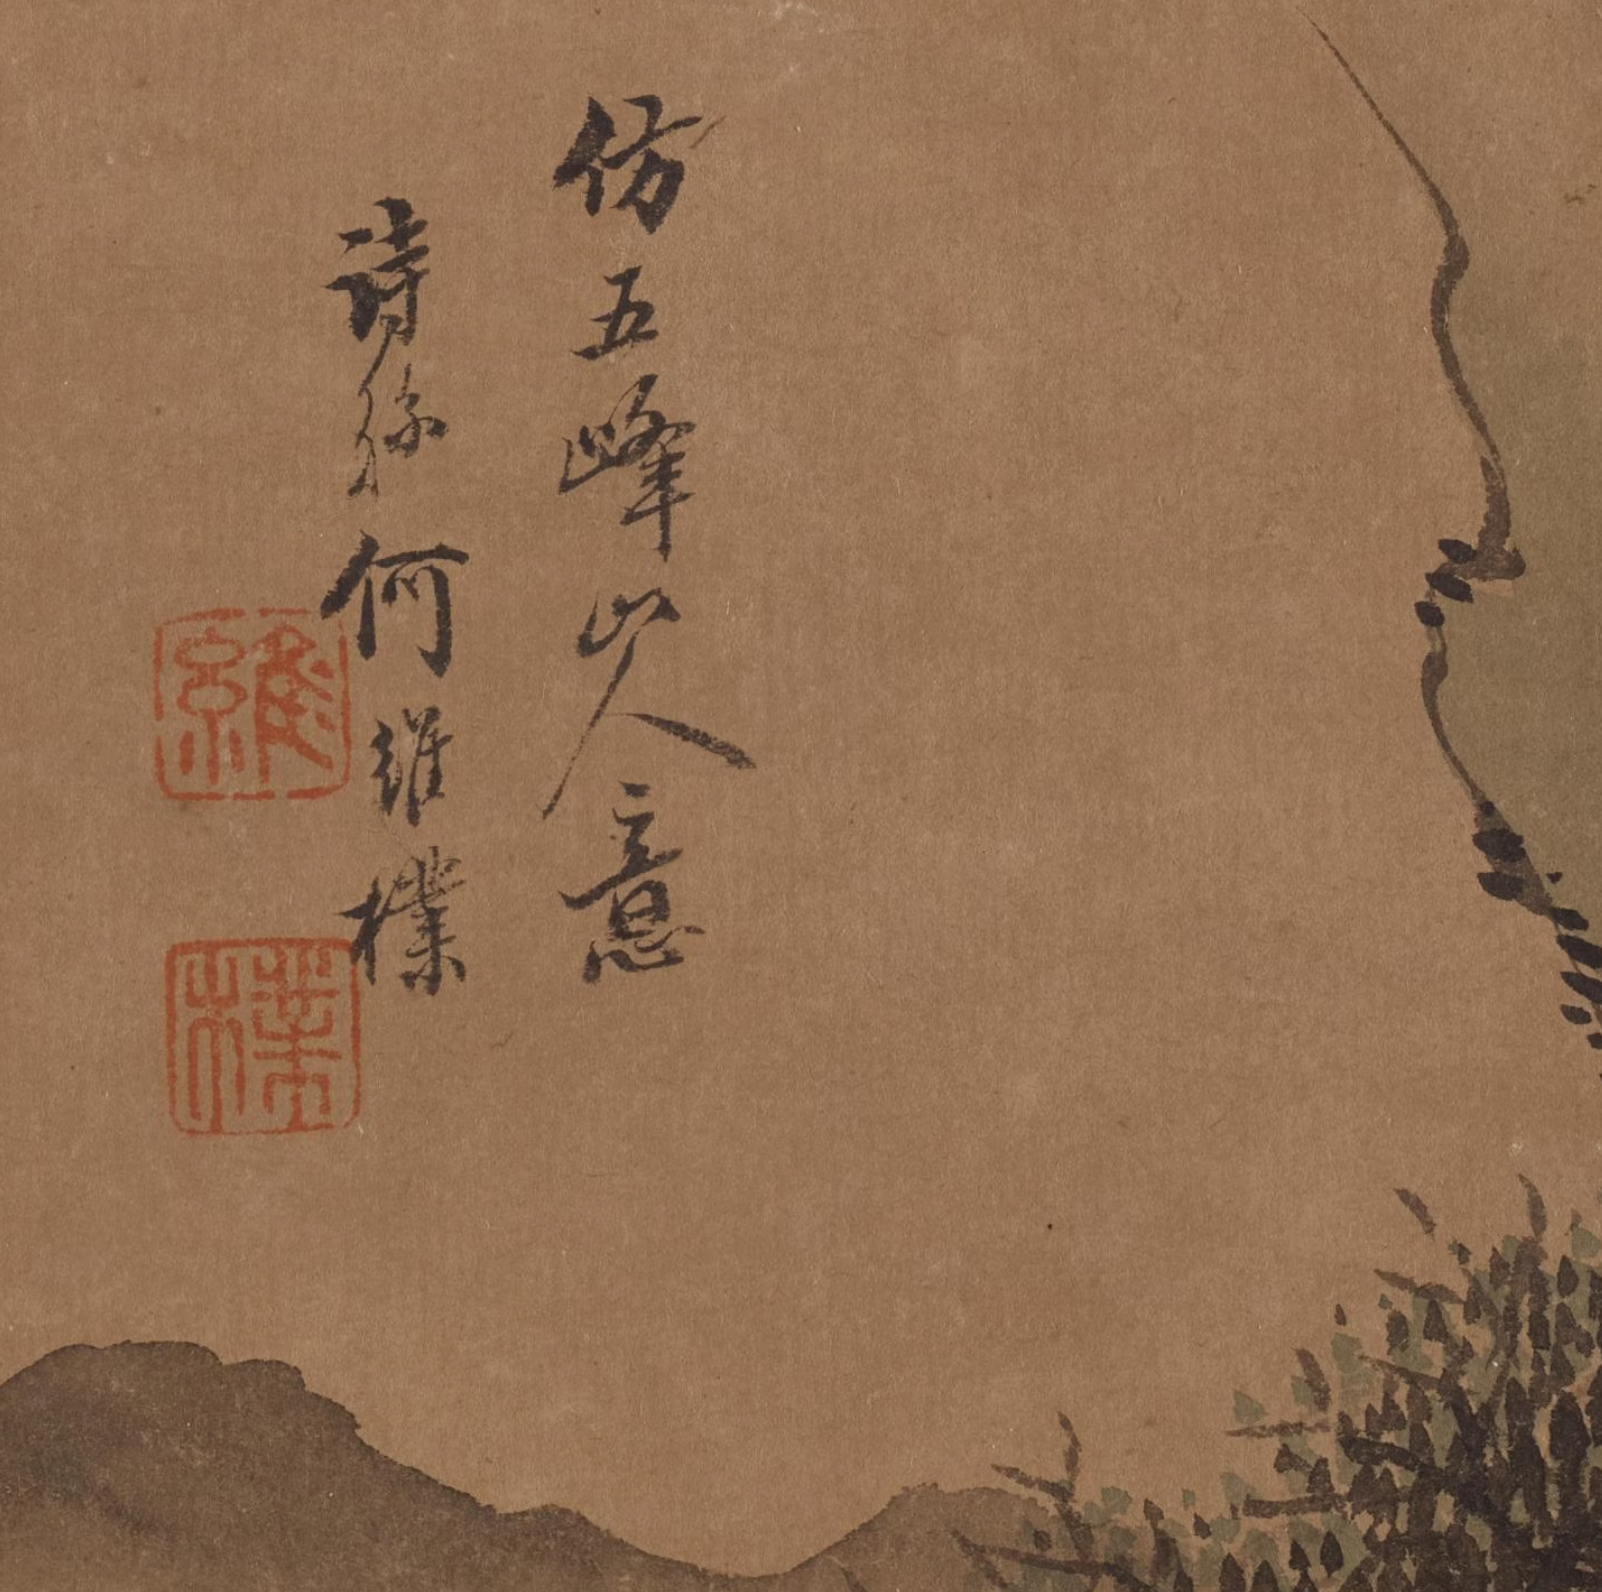 仿五峰山人意
詩孫何維樸
維
樸